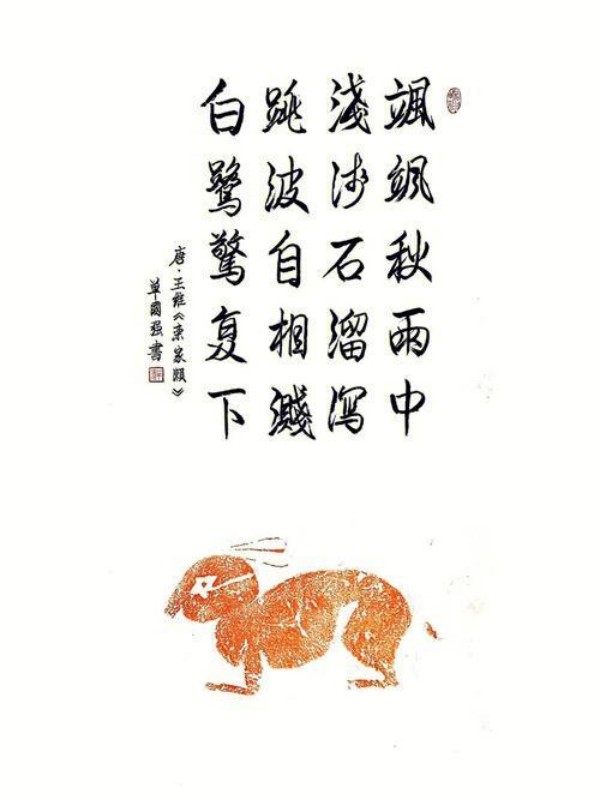 颯颯秋雨中
淺浅石溜瀉
跳波自相濺
白鷺驚复下
唐·王維《栾家瀨》
单國强書